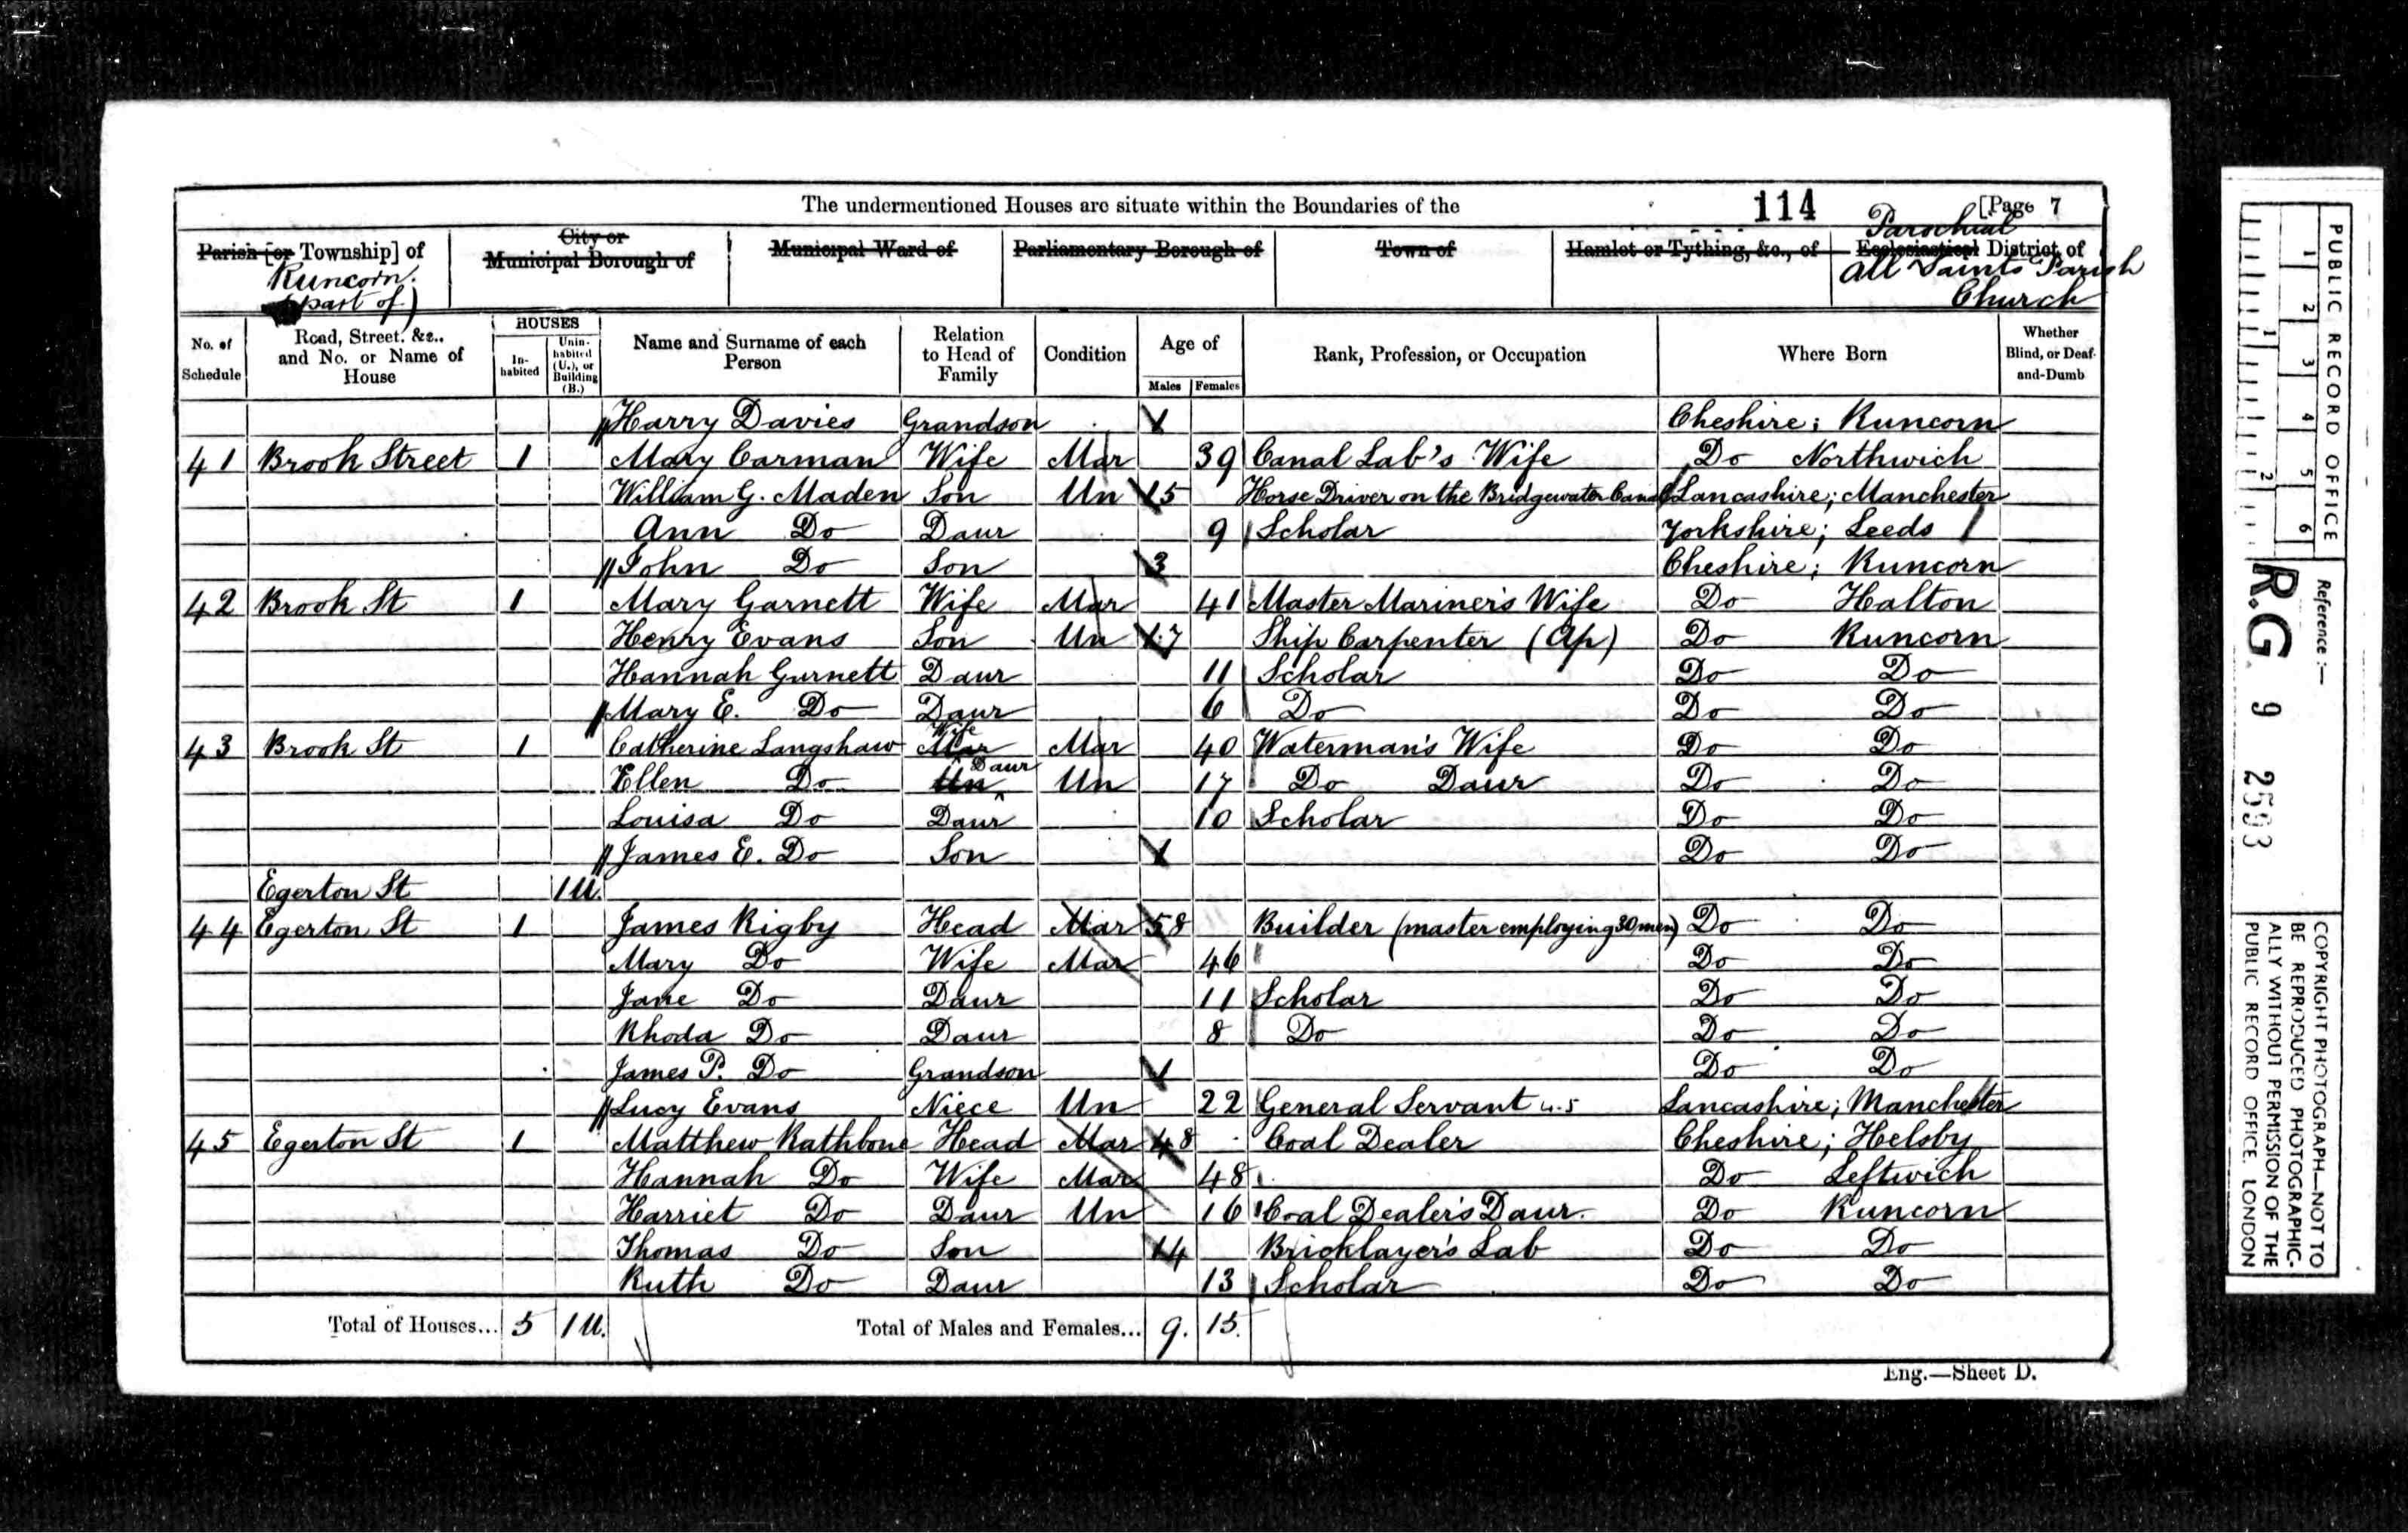 The undermentioned Houses are situate within the Boundaries of the
114
[Page 7
Parish [or Township] of
Runcorn.
(part of)
City or
Municipal Borough of
Municipal Ward of
Parliamentary Borough of
Town of
Hamlet or Tything, &c., of
Parochial
Ecclesiastical District of
All Saints Parish
Church
No. of Schedule
Road, Street, &c., and No. or Name of House
HOUSES
In-habited
Unin-habited (U.), or Building (B.)
Name and Surname of each Person
Relation to Head of Family
Condition
Age of
Males Females
Rank, Profession, or Occupation
Where Born
Whether Blind, or Deaf-and-Dumb
Harry Davies Grandson 1 Cheshire; Runcorn
41 Brook Street 1 Mary Carman Wife Mar 39 Canal Lab's Wife Do Northwich
William G. Maden Son Un 15 Horse Driver on the Bridgewater Canal Lancashire; Manchester
Ann Do Daur 9 Scholar Yorkshire; Leeds
John Do Son 3 Cheshire; Runcorn
42 Brook St 1 Mary Garnett Wife Mar 41 Master Mariner's Wife Do Halton
Henry Evans Son Un 17 Ship Carpenter (Ap) Do Runcorn
Hannah Gurnett Daur 11 Scholar Do Do
Mary E. Do Daur 6 Do Do Do
43 Brook St 1 Catherine Langshaw Mar Wife Mar 40 Waterman's Wife Do Do
Ellen Do Un Daur Un 17 Do Daur Do Do
Louisa Do Daur 10 Scholar Do Do
James E. Do Son 1 Do Do
Egerton St 1 U.
44 Egerton St 1 James Rigby Head Mar 58 Builder (master employing 30 men) Do Do
Mary Do Wife Mar 46 Do Do
Jane Do Daur 11 Scholar Do Do
Rhoda Do Daur 8 Do Do Do
James P. Do Grandson 1 Do Do
Lucy Evans Niece Un 22 General Servant Lancashire; Manchester
45 Egerton St 1 Matthew Rathbone Head Mar 48 Coal Dealer Cheshire; Helsby
Hannah Do Wife Mar 48 Do Leftwich
Harriet Do Daur Un 16 Coal Dealer's Daur. Do Runcorn
Thomas Do Son 14 Bricklayer's Lab Do Do
Ruth Do Daur 13 Scholar Do Do
Total of Houses... 5 1 U. Total of Males and Females... 9. 15.
Eng.—Sheet D.
PUBLIC RECORD OFFICE
1 2 3 4 5 6
1 2
Reference :—
R.G. 9 2593
COPYRIGHT PHOTOGRAPH—NOT TO
BE REPRODUCED PHOTOGRAPHIC-
ALLY WITHOUT PERMISSION OF THE
PUBLIC RECORD OFFICE, LONDON